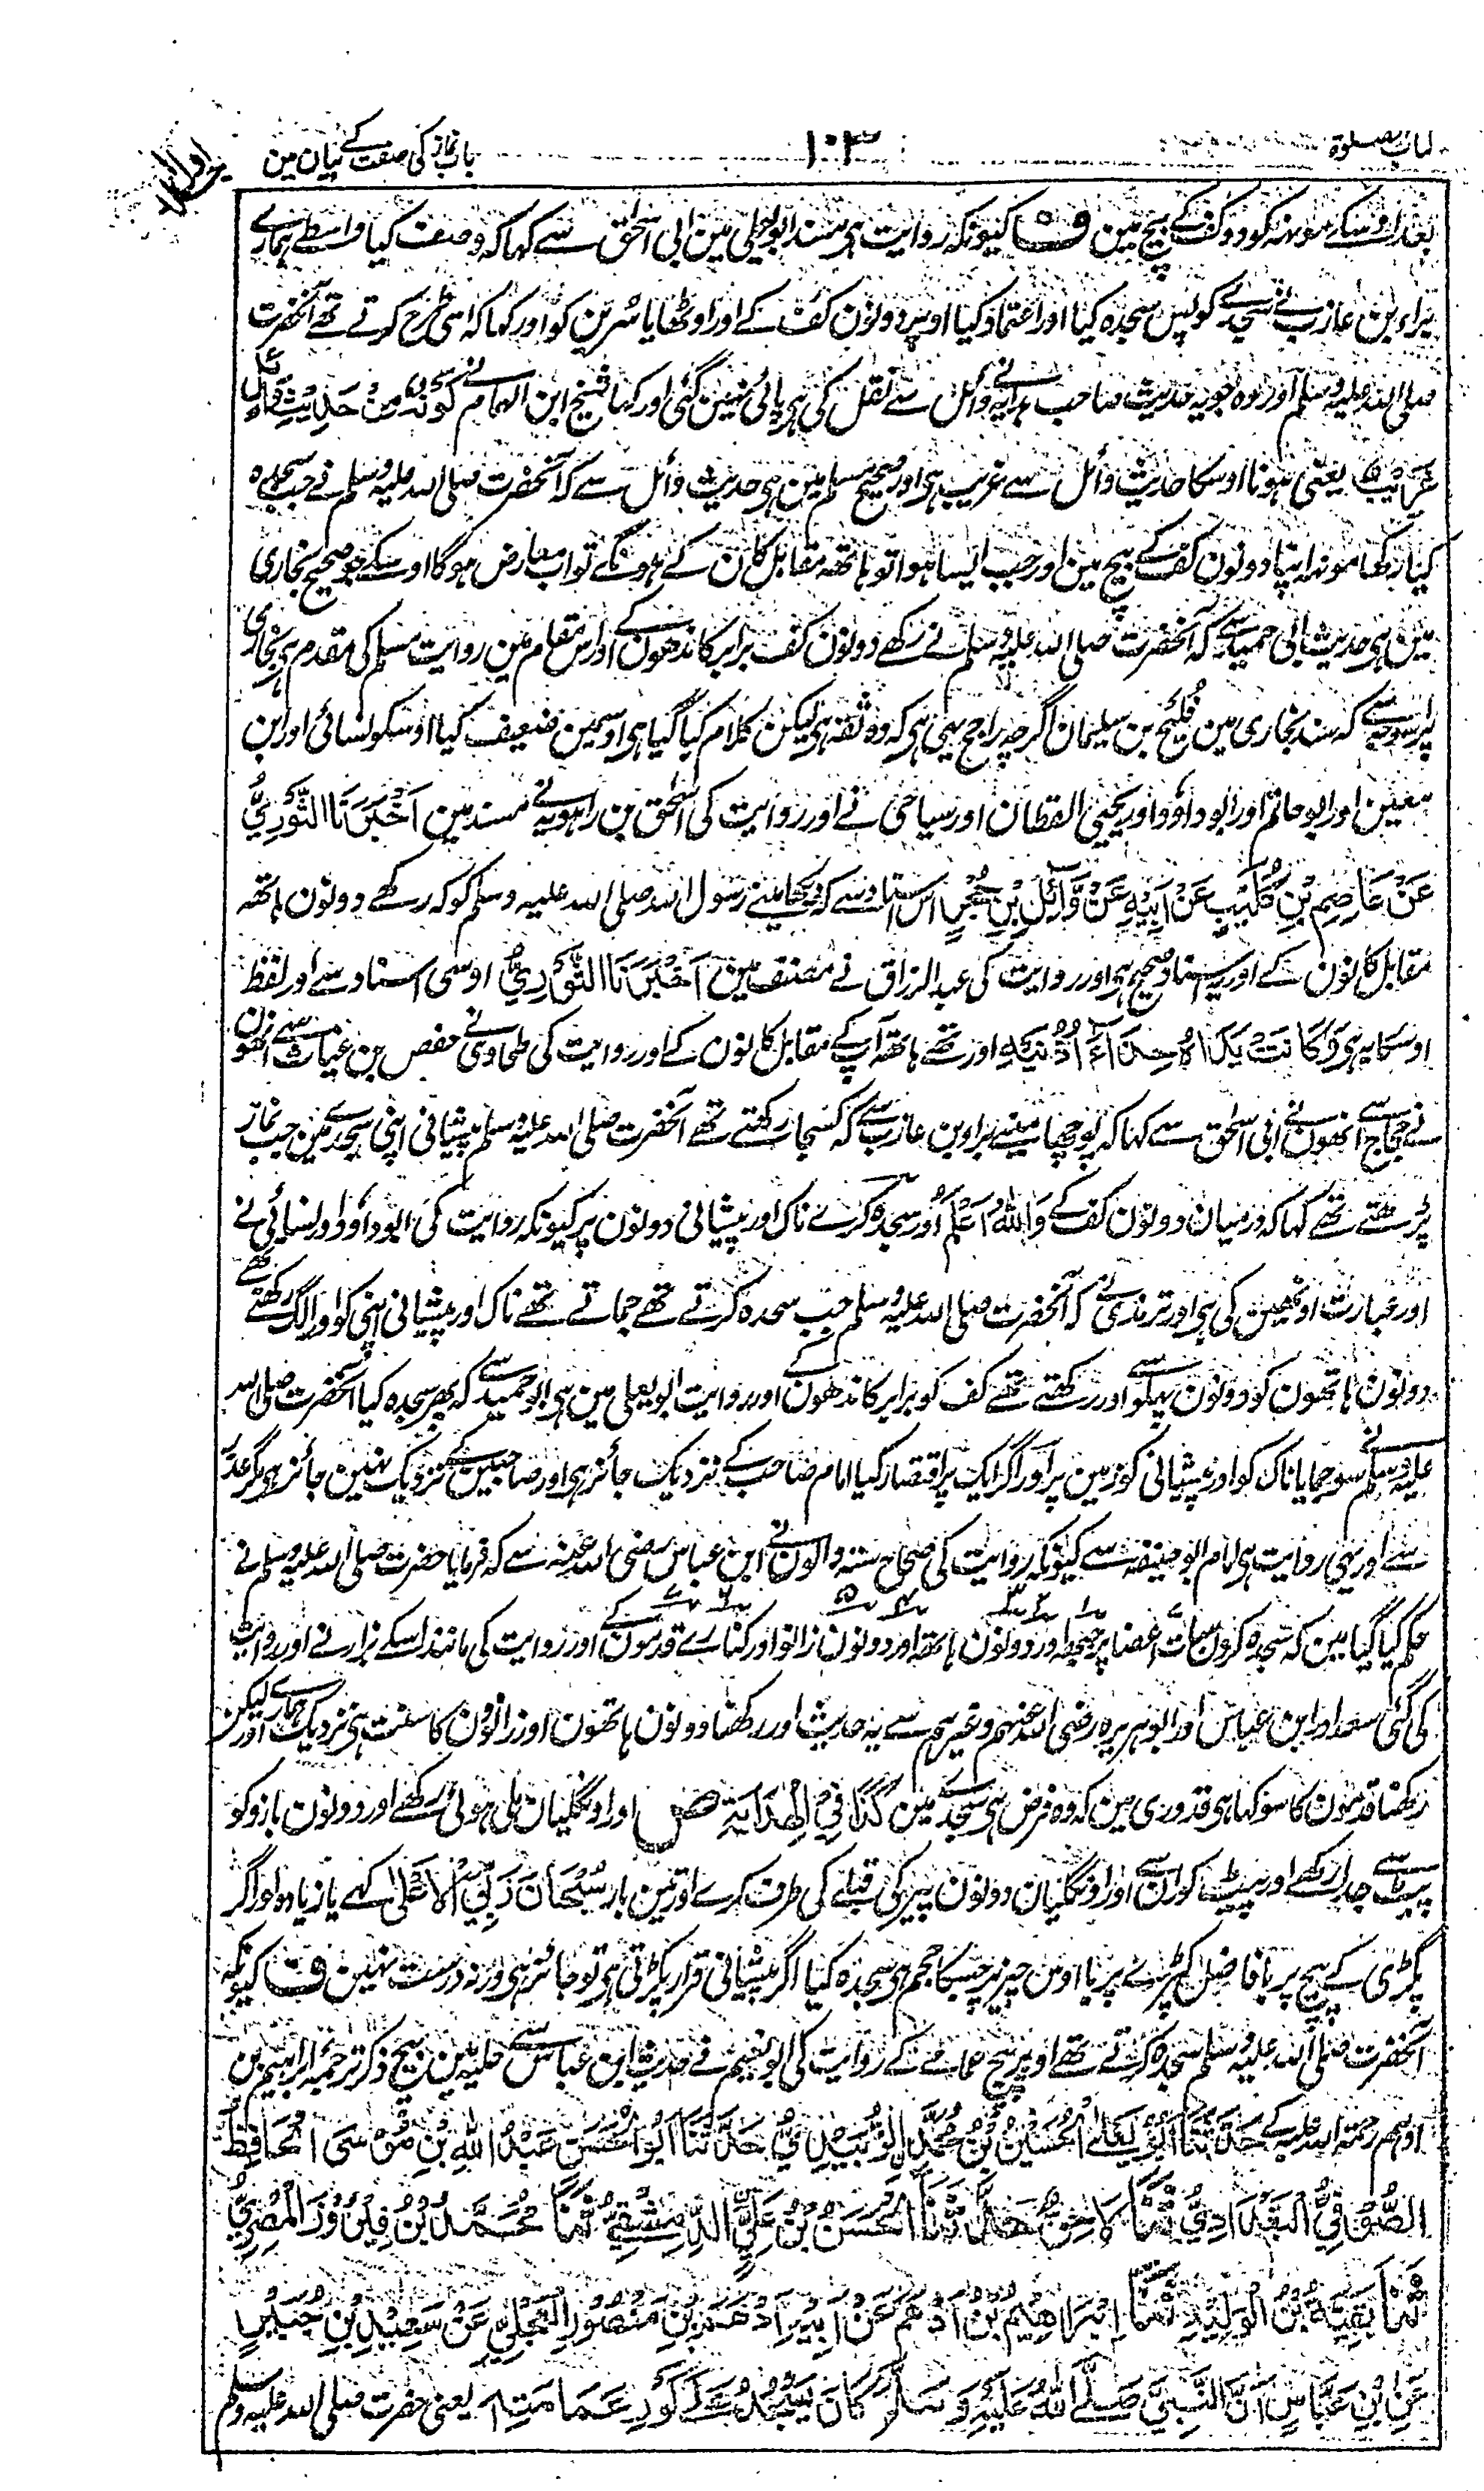 کتاب الصلوٰۃ ۱۰۳ باب نماز کی صفت کے بیان مین جلد اول
بعد اوسکے مونہہ کو دو کف کے بیچ مین ف کیونکہ روایت ہی مسند ابو یعلی مین ابی اسحٰق سے کہا کہ وصف کیا واسطے ہمارے
براء بن عازب نے سجدے کو پس سجدہ کیا اور اعتماد کیا اوپر دونون کف کے اور اوٹھایا سُرین کو اور کہا کہ اسی طرح کرتے تھے آنحضرت
صلی اللہ علیہ وسلم اور وہ جو یہ حدیث صاحب ہدایہ نے وائل سے نقل کی ہی پائی نہین گئی اور کہا شیخ ابن الہمام نے کَوْنُہٗ مِنْ حَدِیْثِ وَائِلٍ
غَرِیْبٌ یعنی ہونا اوسکا حدیث وائل سے غریب ہی اور صحیح مسلم مین ہی حدیث وائل سے کہ آنحضرت صلی اللہ علیہ وسلم نے جب سجدہ
کیا رکھا مونہہ اپنا دونون کف کے بیچ مین اور جب ایسا ہوا تو ہاتھہ مقابل کان کے ہونگے تو اب معارض ہوگا اوسکے جو صحیح بخاری
مین ہی حدیث ابی حمید سے کہ آنحضرت صلی اللہ علیہ وسلم نے رکھے دونون کف برابر کاندھون کے اور اس مقام مین روایت مسلم کی مقدم ہی بخاری
پر اسوجہ سے کہ سند بخاری مین فُلَیْح بن سلیمان اگرچہ راجح یہی ہی کہ وہ ثقہ ہی لیکن کلام کیا گیا ہی اوسمین ضعیف کیا اوسکو نسائی اور ابن
معین اور ابو حاتم اور ابو داؤد اور یحیٰی القطان اور ساجی نے اور روایت کی اسحٰق بن راہویہ نے مسند مین اَخْبَرَنَا الثَّوْرِیُّ
عَنْ عَاصِمِ بْنِ کُلَیْبٍ عَنْ اَبِیْہِ عَنْ وَّائِلِ بْنِ حُجْرٍ اس اسناد سے کہ دیکھا مینے رسول اللہ صلی اللہ علیہ وسلم کو کہ رکھے دونون ہاتھہ
مقابل کانون کے اور یہ اسناد صحیح ہی اور روایت کی عبد الرزاق نے مصنف مین اَخْبَرَنَا الثَّوْرِیُّ اوسی اسناد سے اور لفظ
اوسکا یہ ہی وَکَانَتْ یَدَاہُ حِذَآءَ اُذُنَیْہِ اور تھے ہاتھہ آپ کے مقابل کانون کے اور روایت کی طحاوی نے حفص بن غیاث سے اونھون
نے حجاج سے انھون نے ابی اسحٰق سے کہا کہ پوچھا مینے براء بن عازب سے کہ کسجا رکھتے تھے آنحضرت صلی اللہ علیہ وسلم پیشانی اپنی سجدے مین جب نماز
پڑھتے تھے کہا کہ درمیان دونون کف کے وَاللّٰہُ اَعْلَمُ اور سجدہ کرے ناک اور پیشانی دونون پر کیونکہ روایت کی ابو داؤد اور نسائی نے
اور عبارت اونھین کی ہی اور ترمذی نے کہ آنحضرت صلی اللہ علیہ وسلم جب سجدہ کرتے تھے جماتے تھے ناک اور پیشانی اپنی کو اور الگ رکھتے تھے
دونون ہاتھون کو دونون پہلو سے اور رکھتے تھے کف کو برابر کاندھون کے اور روایت ابو یعلی مین ہی ابو حمید سے کہ پھر سجدہ کیا آنحضرت صلی اللہ
علیہ وسلم نے سو جمایا ناک کو اور پیشانی کو زمین پر اور اگر ایک پر اقتصار کیا امام صاحب کے نزدیک جائز ہی اور صاحبین کے نزدیک نہین جائز ہی مگر عذر
سے اور یہی روایت ہی امام ابو حنیفہ سے کیونکہ روایت کی صحاح ستہ والون نے ابن عباس رضی اللہ عنہ سے کہ فرمایا حضرت صلی اللہ علیہ وسلم نے
حکم کیا گیا مین کہ سجدہ کرون سات اعضا پر جبہہ اور دونون ہاتھہ اور دونون زانو اور کنارے قدمون کے اور روایت کی مانند اسکے بزار نے اور روایت
کی گئی سعد اور ابن عباس اور ابو ہریرہ رضی اللہ عنہم وغیرہم سے یہ حدیث اور رکھنا دونون ہاتھون اور زانوون کا سنت ہی نزدیک ہمارے لیکن اور
رکھنا قدمون کا سو کہا ہی قدوری مین کہ وہ فرض ہی سجدے مین کَذَا فِیْ الْہِدَایَۃِ ص اور اونگلیان ملی ہوئی رکھے اور دونون بازو کو
پیٹ سے جدا رکھے اور پیٹ کو ران سے اور اونگلیان دونون پیر کی قبلے کی طرف کرے اور تین بار سُبْحَانَ رَبِّیَ الْاَعْلٰی کہے یا زیادہ اور اگر
پگڑی کے پیچ پر یا فاضل کپڑے پر یا اوس چیز پر جسکا حجم ہی سجدہ کیا اگر پیشانی قرار پکڑتی ہی تو جائز ہی ورنہ درست نہین ف کیونکہ
آنحضرت صلی اللہ علیہ وسلم سجدہ کرتے تھے اوپر پیچ عمامے کے روایت کی ابو نعیم نے حدیث ابن عباس سے حلیہ مین بیچ ذکر ترجمۂ ابراہیم بن
ادہم رحمۃ اللہ علیہ کے حَدَّثَنَا اَبُوْ یَعْلٰی الْحُسَیْنُ بْنُ مُحَمَّدٍ الزُّبَیْدِیُّ حَدَّثَنَا اَبُو الْحَسَنِ عَبْدُ اللّٰہِ بْنِ مُوْسَی الْحَافِظُ
الصُّوْفِیُّ الْبَغْدَادِیُّ ثَنَا لَاحِقٌ حَدَّثَنَا الْحَسَنُ بْنُ عَلِیٍّ الدِّمِشْقِیُّ ثَنَا مُحَمَّدُ بْنُ فِیْرُوْزَ الْمِصْرِیُّ
ثَنَا بَقِیَّۃُ بْنُ الْوَلِیْدِ ثَنَا اِبْرَاہِیْمُ بْنُ اَدْہَمَ عَنْ اَبِیْہِ اَدْہَمَ بْنِ مَنْصُوْرٍ الْعِجْلِیِّ عَنْ سَعِیْدِ بْنِ جُبَیْرٍ
عَنِ ابْنِ عَبَّاسٍ اَنَّ النَّبِیَّ صَلَّی اللّٰہُ عَلَیْہِ وَسَلَّمَ کَانَ یَسْجُدُ عَلٰی کَوْرِ عَمَامَتِہٖ یعنی حضرت صلی اللہ علیہ وسلم